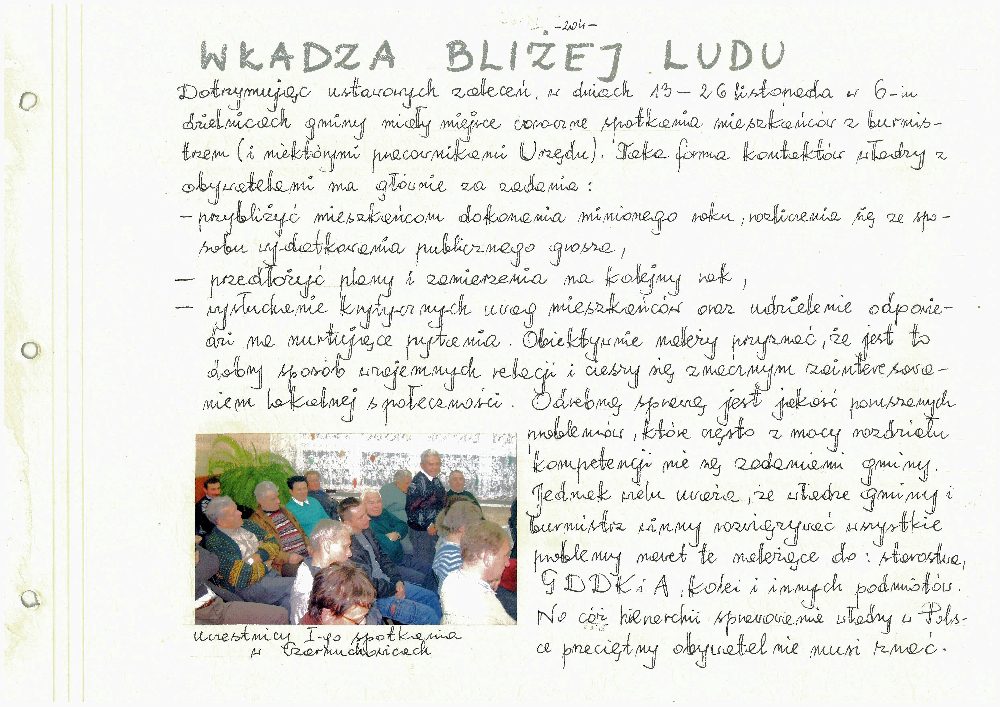 -204-
WŁADZA BLIŻEJ LUDU
Dotrzymując ustawowych zaleceń, w dniach 13 – 26 listopada w 6-iu
dzielnicach gminy miały miejsce coroczne spotkania mieszkańców z burmis-
trzem (i niektórymi pracownikami Urzędu). Taka forma kontaktów władzy z
obywatelami ma głównie za zadania:
– przybliżyć mieszkańcom dokonania minionego roku, rozliczenia się ze spo-
sobu wydatkowania publicznego grosza,
– przedłożyć plany i zamierzenia na kolejny rok,
– wysłuchanie krytycznych uwag mieszkańców oraz udzielenie odpowie-
dzi na nurtujące pytania. Obiektywnie należy przyznać, że jest to
dobry sposób wzajemnych relacji i cieszy się znacznym zainteresowa-
niem lokalnej społeczności. Odrębną sprawą jest jakość poruszanych
problemów, które często z mocy rozdziału
kompetencji nie są zadaniami gminy.
Jednak wielu uważa, że władze gminy i
burmistrz winny rozwiązywać wszystkie
problemy nawet te należące do: starostwa,
GDDKiA, kolei i innych podmiotów.
No cóż hierarchii sprawowania władzy w Pols-
ce przeciętny obywatel nie musi znać.
Uczestnicy I-go spotkania
w Czarnuchowicach